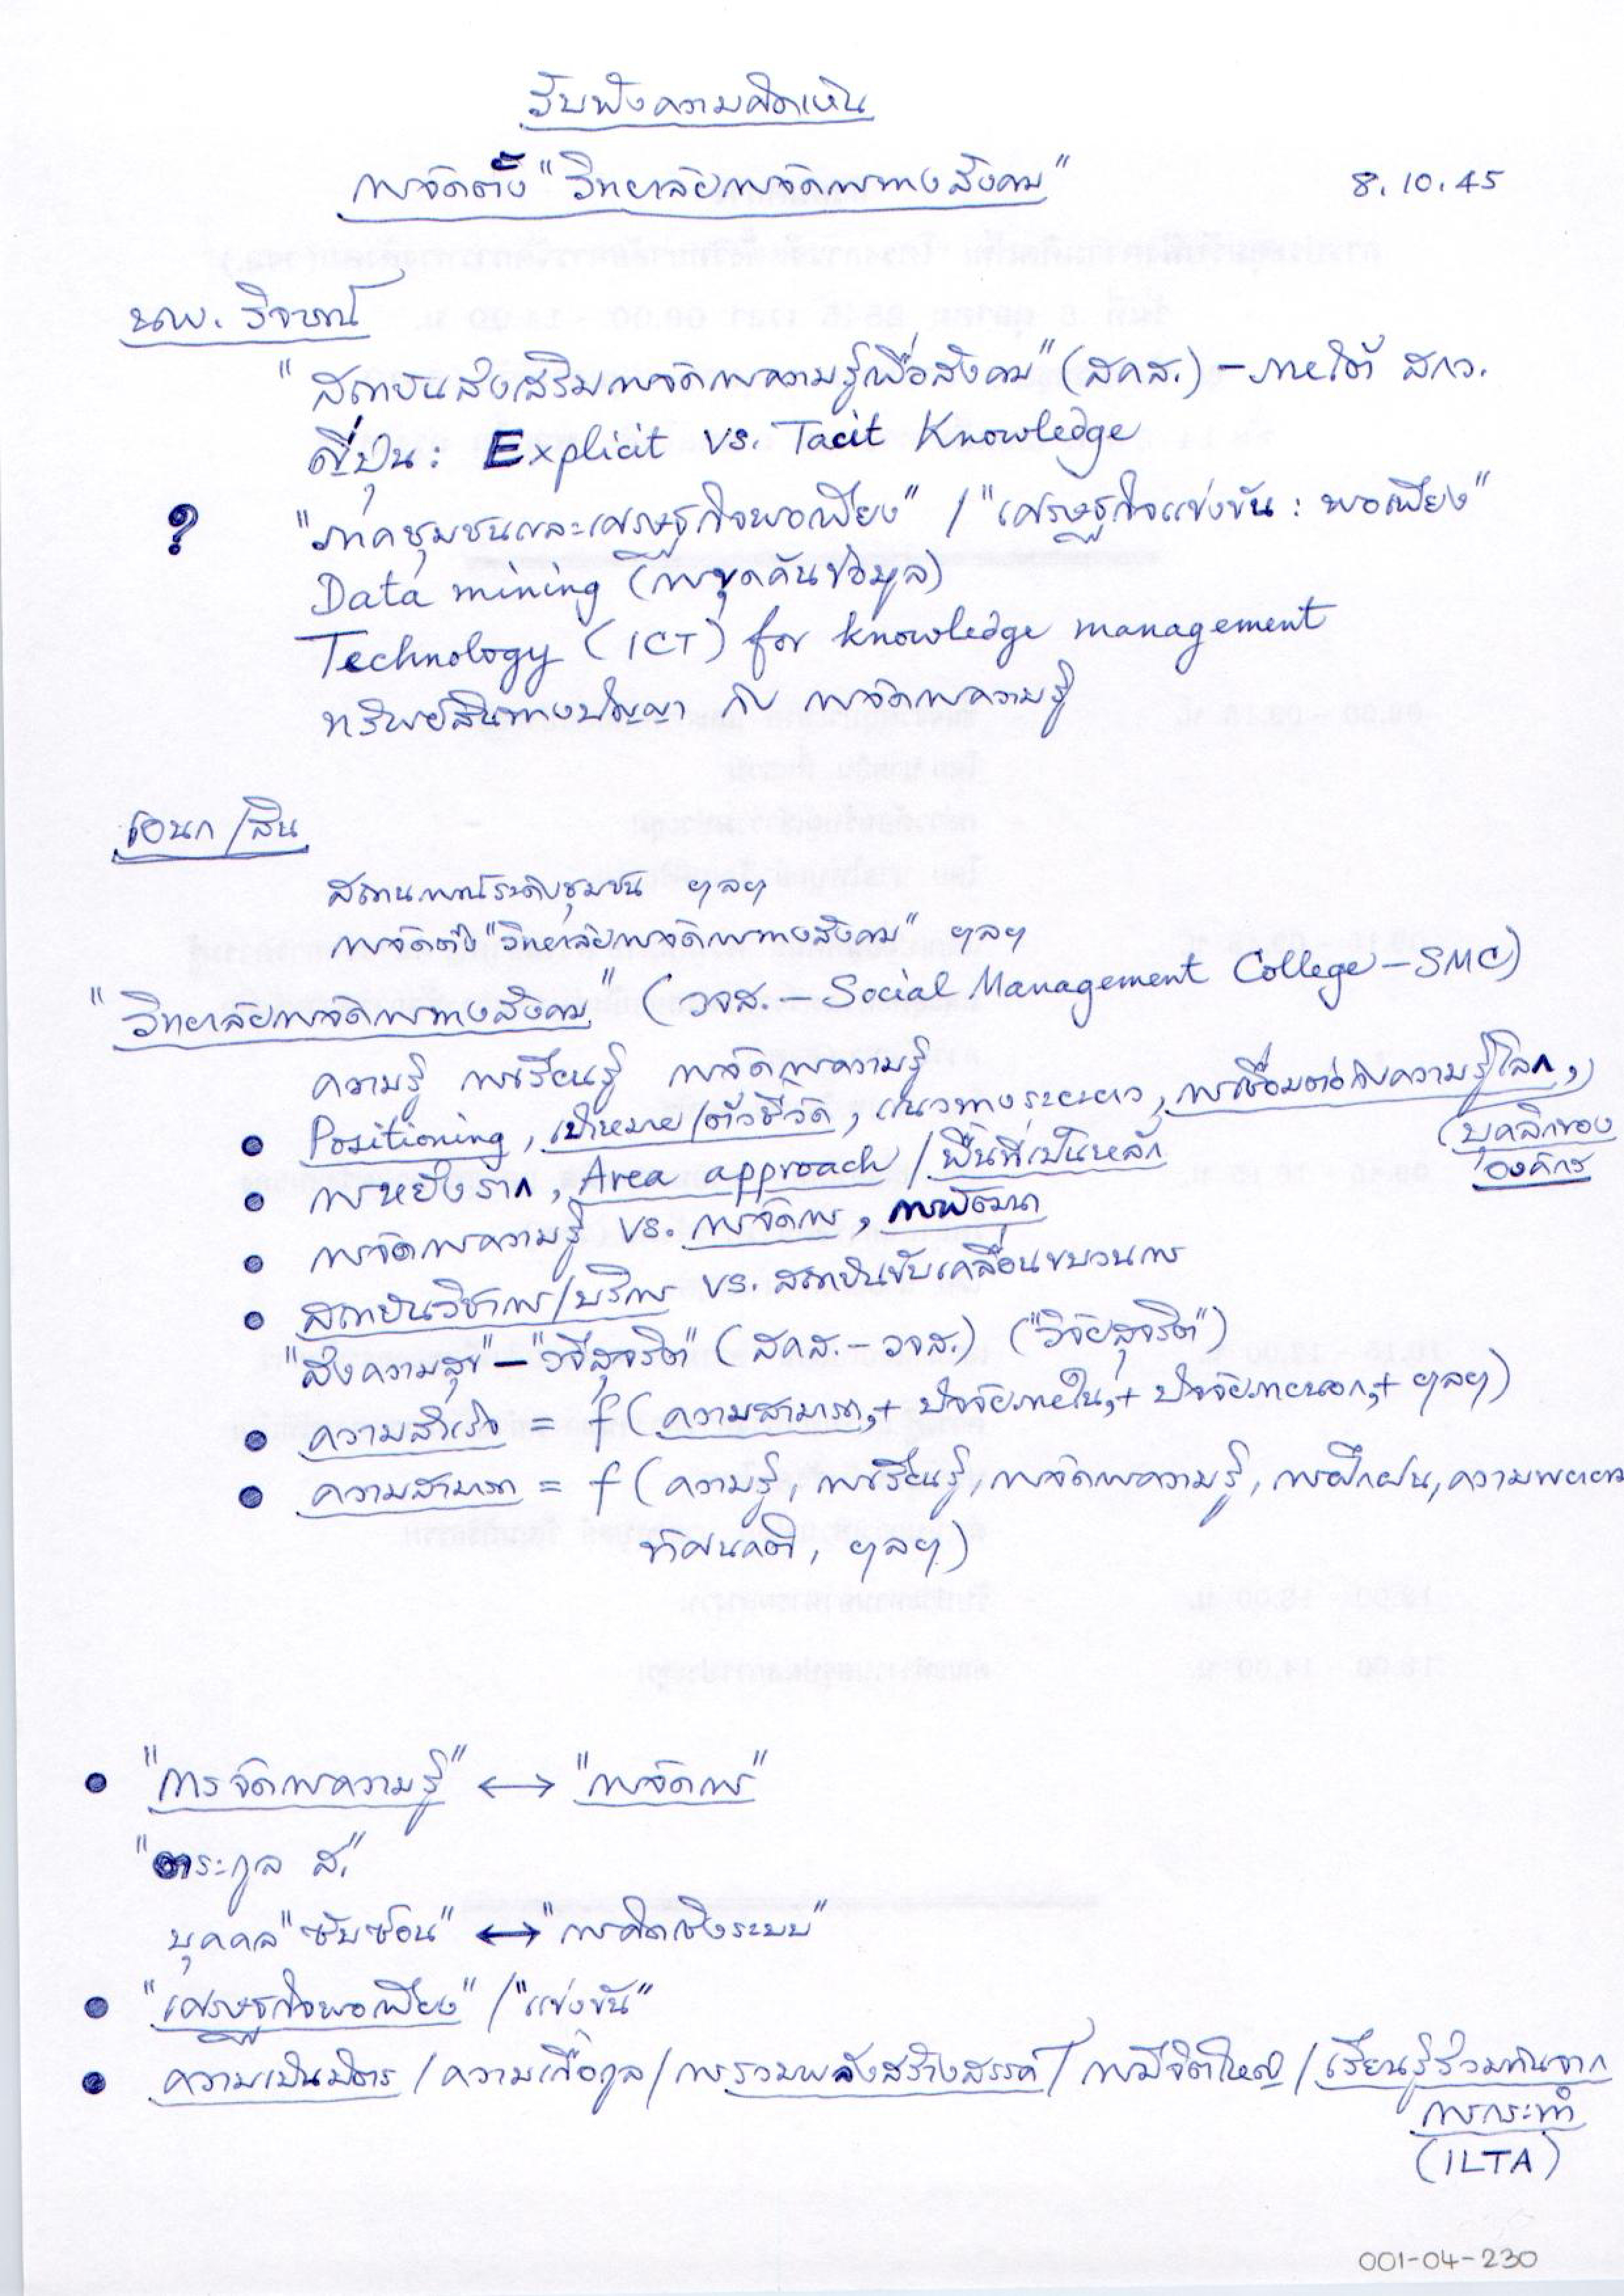 รับฟังความคิดเห็น
การจัดตั้ง "วิทยาลัยการจัดการทางสังคม" 8.10.45
นพ. วิจารณ์
"สถาบันส่งเสริมการจัดการความรู้เพื่อสังคม" (สคส.) – ภายใต้ สกว.
ญี่ปุ่น : Explicit vs. Tacit Knowledge
? "ภาคชุมชนและเศรษฐกิจพอเพียง" / "เศรษฐกิจแข่งขัน : พอเพียง"
Data mining (การขุดค้นข้อมูล)
Technology (ICT) for knowledge management
ทรัพย์สินทางปัญญา กับ การจัดการความรู้
เอนก / สิน
สถานการณ์ระดับชุมชน ฯลฯ
การจัดตั้ง "วิทยาลัยการจัดการทางสังคม" ฯลฯ
"วิทยาลัยการจัดการทางสังคม" (วจส. – Social Management College – SMC)
ความรู้ การเรียนรู้ การจัดการความรู้
● Positioning, เป้าหมาย/ตัวชี้วัด, แนวทางระยะยาว, การเชื่อมต่อกับความรู้โลก,
(บุคลิกของ
องค์กร
● การหยั่งราก, Area approach / พื้นที่เป็นหลัก
● การจัดการความรู้ vs. การจัดการ, การพัฒนา
● สถาบันวิชาการ/บริการ vs. สถาบันขับเคลื่อนขบวนการ
"ส่งความสุข" – "วจีสุจริต" (สคส. – วจส.) ("วิจัยสุจริต")
● ความสำเร็จ = f (ความสามารถ, + ปัจจัยภายใน, + ปัจจัยภายนอก, + ฯลฯ)
● ความสามารถ = f (ความรู้, การเรียนรู้, การจัดการความรู้, การฝึกฝน, ความพยายาม
ทัศนคติ, ฯลฯ)
● "การจัดการความรู้" ↔ "การจัดการ"
"ตระกูล ส."
บุคคล "ซับซ้อน" ↔ "การคิดเชิงระบบ"
● "เศรษฐกิจพอเพียง" / "แข่งขัน"
● ความเป็นมิตร / ความเกื้อกูล / การรวมพลังสร้างสรรค์ / การมีจิตใหญ่ / เรียนรู้ร่วมกันจาก
การกระทำ
(ILTA)
001-04-230